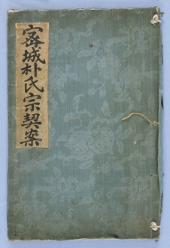 密城朴氏宗契案